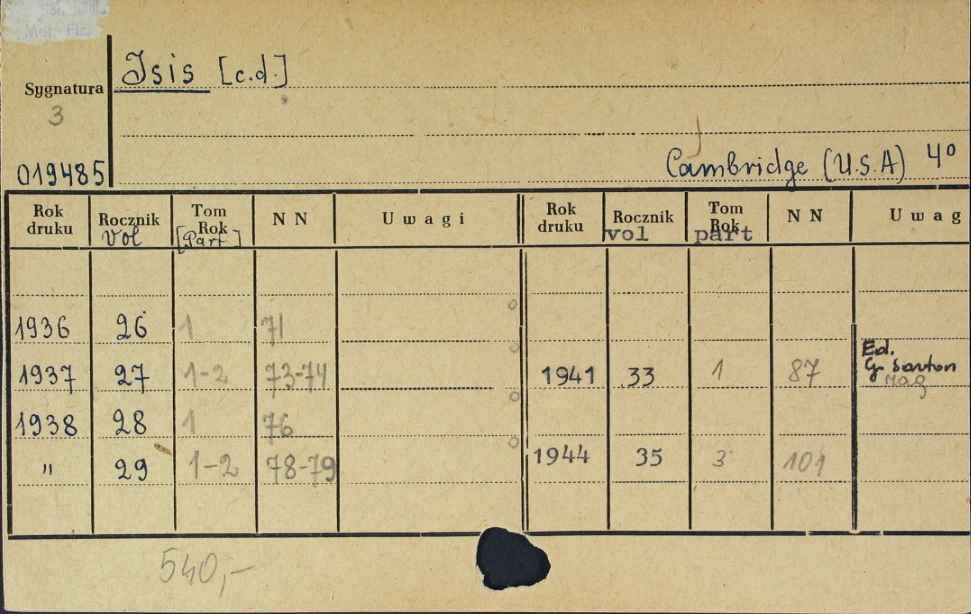 Isis [c.d.]
Sygnatura
3
019485
Cambridge (U.S.A) 4°
Rok druku Rocznik Vol Tom Rok [Part] NN Uwagi Rok druku Rocznik vol Tom Rok part NN Uwag
1936 26 1 71
1937 27 1-2 73-74 1941 33 1 87 Ed. G Sarton Mag
1938 28 1 76
" 29 1-2 78-79 1944 35 3 101
540,-